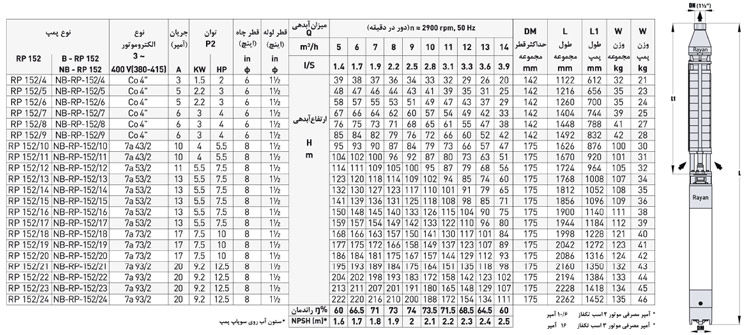 نوع پمپ
نوع الکتروموتور
جریان (آمپر)
توان P2
قطر چاه (اینچ)
قطر لوله (اینچ)
میزان آبدهی Q
(دور در دقیقه) n = 2900 rpm, 50 Hz
DM حداکثر قطر مجموعه mm
L طول مجموعه mm
L1 طول پمپ mm
W وزن مجموعه kg
W وزن پمپ kg
m³/h 5 6 7 8 9 10 11 12 13 14
RP 152
B - RP 152
NB - RP 152
3 ~
400 V(380-415)
A KW HP in ϕ in ϕ
I/S 1.4 1.7 1.9 2.2 2.5 2.8 3.1 3.3 3.6 3.9
ارتفاع آبدهی H m
RP 152/4 NB-RP-152/4 Co 4" 3 1.5 2 6 1½ 39 38 37 36 34 33 32 29 26 20 142 1122 612 32 21
RP 152/5 NB-RP-152/5 Co 4" 5 2.2 3 6 1½ 48 47 46 44 43 41 39 35 31 25 142 1216 656 35 23
RP 152/6 NB-RP-152/6 Co 4" 5 2.2 3 6 1½ 58 57 55 53 51 49 47 43 37 29 142 1260 700 35 24
RP 152/7 NB-RP-152/7 Co 4" 6 3 4 6 1½ 67 66 64 62 60 57 54 49 42 33 142 1404 744 39 25
RP 152/8 NB-RP-152/8 Co 4" 6 3 4 6 1½ 76 75 73 71 68 65 61 55 47 38 142 1448 788 41 27
RP 152/9 NB-RP-152/9 Co 4" 6 3 4 6 1½ 85 84 82 79 76 72 66 60 52 42 142 1492 832 42 28
RP 152/10 NB-RP-152/10 7a 43/2 10 4 5.5 8 1½ 95 93 90 87 84 79 73 67 56 46 175 1626 876 100 30
RP 152/11 NB-RP-152/11 7a 43/2 10 4 5.5 8 1½ 104 102 100 96 92 87 80 73 63 51 175 1670 920 101 31
RP 152/12 NB-RP-152/12 7a 53/2 11 5.5 7.5 8 1½ 114 111 109 105 100 95 87 79 68 56 175 1724 964 105 32
RP 152/13 NB-RP-152/13 7a 53/2 13 5.5 7.5 8 1½ 123 120 118 114 109 102 94 85 74 60 175 1768 1008 107 34
RP 152/14 NB-RP-152/14 7a 53/2 13 5.5 7.5 8 1½ 132 130 127 123 117 110 101 91 79 64 175 1812 1052 108 35
RP 152/15 NB-RP-152/15 7a 53/2 13 5.5 7.5 8 1½ 141 139 136 131 125 118 108 98 85 71 175 1856 1096 109 36
RP 152/16 NB-RP-152/16 7a 53/2 13 5.5 7.5 8 1½ 150 148 145 140 133 126 115 104 90 75 175 1900 1140 111 38
RP 152/17 NB-RP-152/17 7a 53/2 13 5.5 7.5 8 1½ 159 157 154 149 142 133 122 110 96 80 175 1944 1184 112 39
RP 152/18 NB-RP-152/18 7a 73/2 17 7.5 10 8 1½ 168 166 163 157 150 141 130 117 101 84 175 1998 1228 121 40
RP 152/19 NB-RP-152/19 7a 73/2 17 7.5 10 8 1½ 177 175 172 166 158 149 137 123 107 89 175 2042 1272 123 41
RP 152/20 NB-RP-152/20 7a 73/2 17 7.5 10 8 1½ 186 184 181 175 167 157 144 129 112 93 175 2086 1316 124 42
RP 152/21 NB-RP-152/21 7a 93/2 20 9.2 12.5 8 1½ 195 193 189 184 175 164 151 135 118 98 175 2160 1350 132 43
RP 152/22 NB-RP-152/22 7a 93/2 20 9.2 12.5 8 1½ 204 202 198 193 183 172 158 142 123 102 175 2194 1384 133 44
RP 152/23 NB-RP-152/23 7a 93/2 20 9.2 12.5 8 1½ 213 211 207 201 192 180 165 148 128 107 175 2228 1418 134 45
RP 152/24 NB-RP-152/24 7a 93/2 20 9.2 12.5 8 1½ 222 220 216 210 200 188 172 154 134 111 175 2262 1452 135 46
راندمان η% 60 66.5 71 73 74 73.5 71.5 68.5 64.5 60
NPSH (m)* 1.6 1.7 1.8 1.9 2 2.1 2.2 2.3 2.4 2.5
* ستون آب روی سوپاپ پمپ
* آمپر مصرفی موتور ۲ اسب تکفاز ۱۰/۶ آمپر
آمپر مصرفی موتور ۳ اسب تکفاز ۱۶ آمپر
DM (1½")
Rayan
L1
L
Rayan